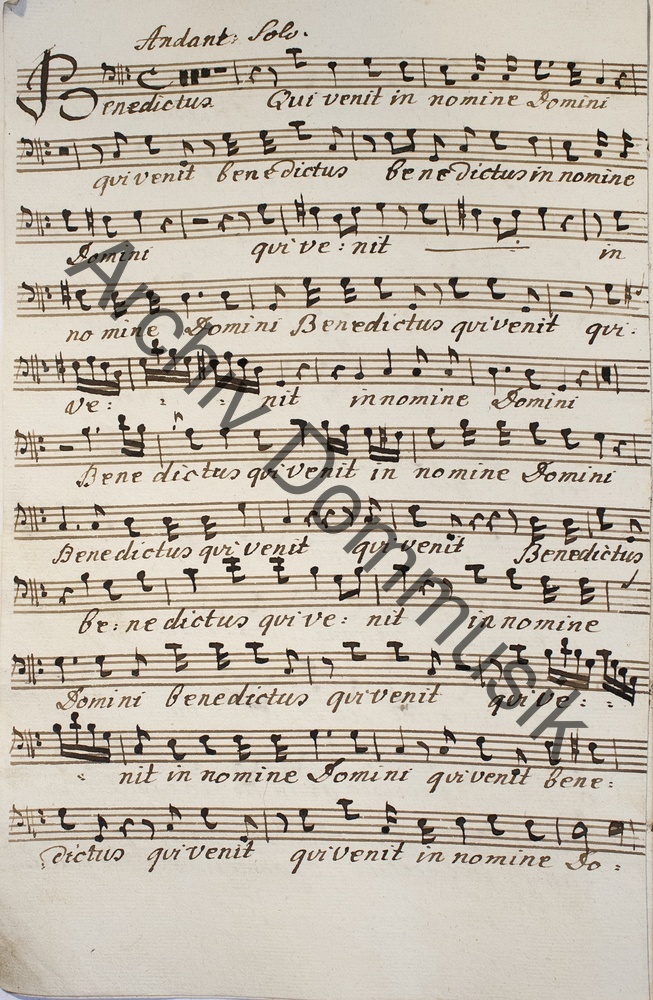 Andant: Solo.
Benedictus Qui venit in nomine Domini
qui venit benedictus benedictus in nomine
Domini qui ve: nit in
no mine Domini Benedictus qui venit qui:
ve: : : nit in nomine Domini
Bene dictus qui venit in nomine Domini
Benedictus qui venit qui venit Benedictus
be: ne dictus qui ve: nit in nomine
Domini benedictus qui venit qui ve: :
: nit in nomine Domini qui venit bene:
dictus qui venit qui venit in nomine Do:
Archiv Dommusik